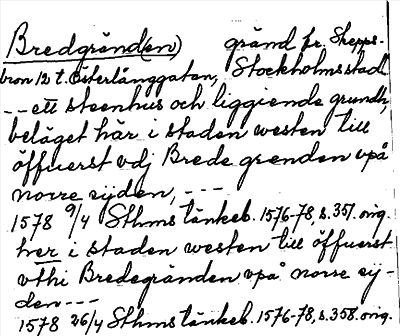 Bredgränd(en) gränd fr. Skepps-
bron 12 t. Österlånggatan, Stockholms stad
-- ett steenhus och liggiende grundh,
beläget här i staden westen till
öffuerst vdj Brede grenden vpå
norre sijden, ---
1578 9/4 Sthms tänkeb. 1576-78, s. 357. orig.
her i staden westen till öffuerst
vthi Bredegränden vpå norre sij-
den ---
1578 26/4 Sthms tänkeb. 1576-78, s. 358. orig.